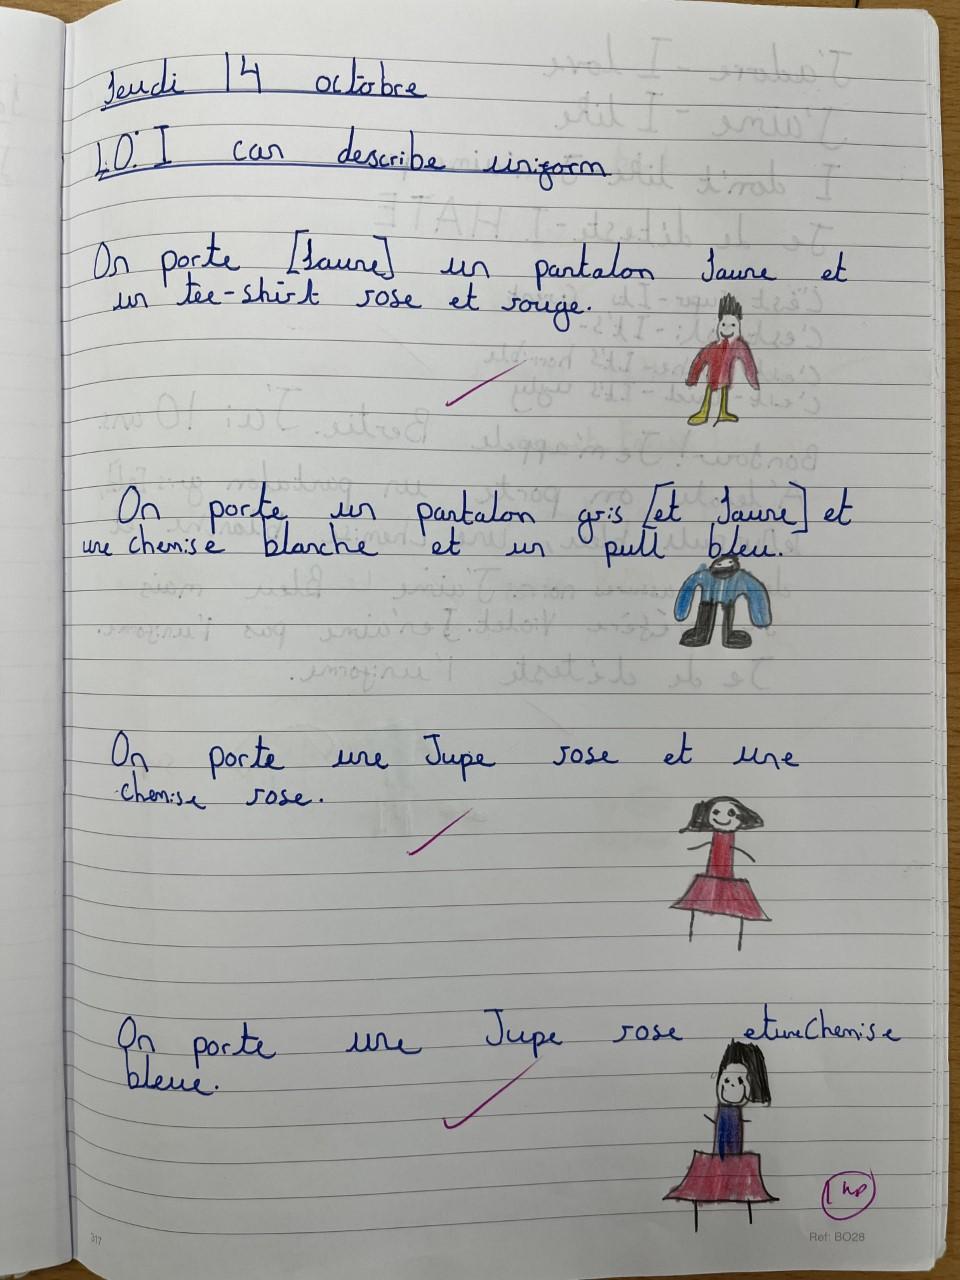 Jeudi 14 octobre
L.O: I can describe uniform
On porte [Jaune] un pantalon Jaune et
un tee-shirt rose et rouge.
On porte un pantalon gris [et Jaune] et
une chemise blanche et un pull bleu.
On porte une Jupe rose et une
chemise rose.
On porte une Jupe rose et une Chemise
bleue.
1 HP
317
Ref: BO28